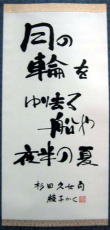 月の
輪を
ゆり去る
船や
夜半の夏
杉田久女句